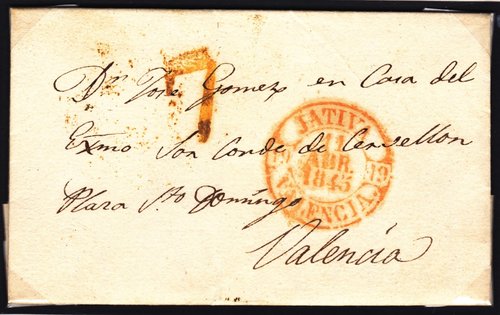 7
Dn José Gomez en Casa del
Exmo Sor Conde de Cervellon
Plaza Sto Domingo
Valencia
JATIVA
11
ABR
1845
VALENCIA
19